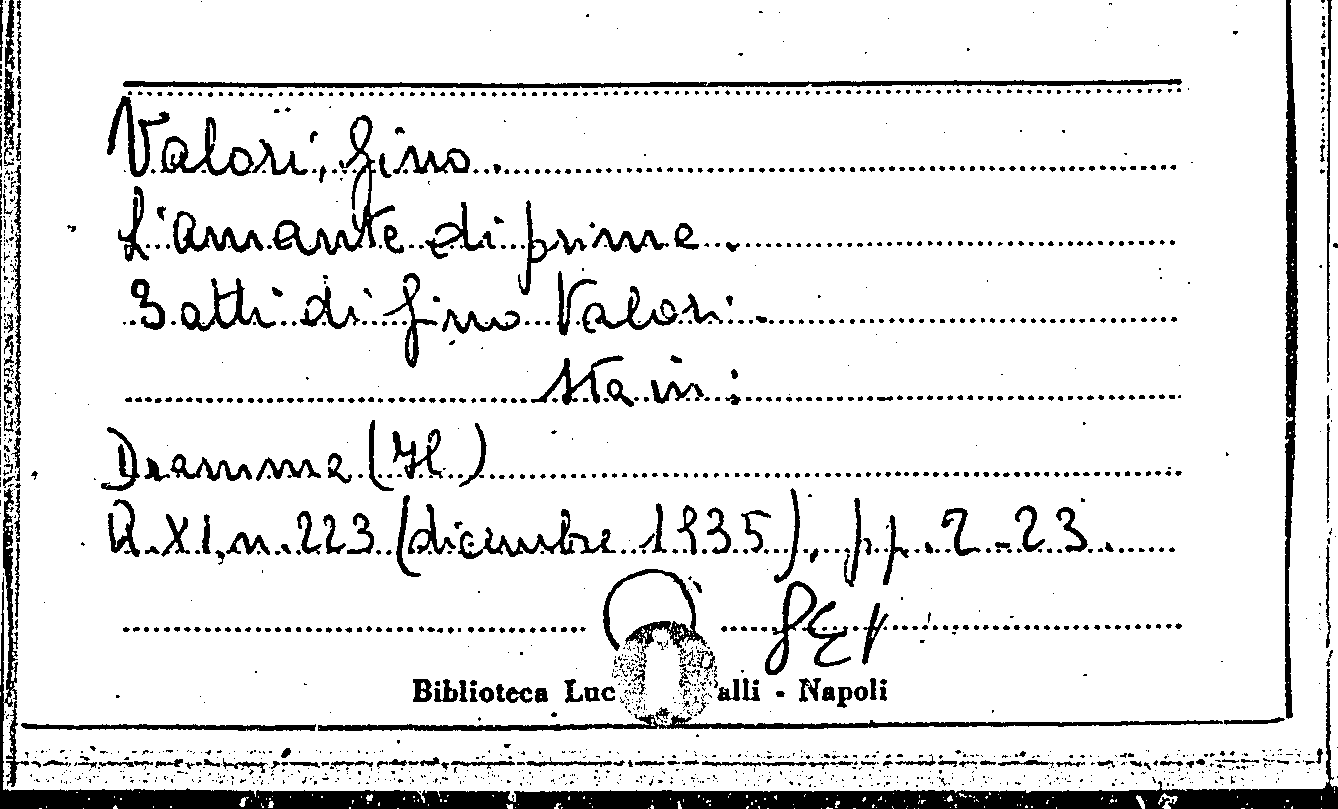 Valori, Gino.
L'amante di prima.
3 atti di Gino Valori.
Sta in:
Dramma (Il)
A. XI, n. 223 (dicembre 1935), pp. 2-23.
Biblioteca Luc alli - Napoli